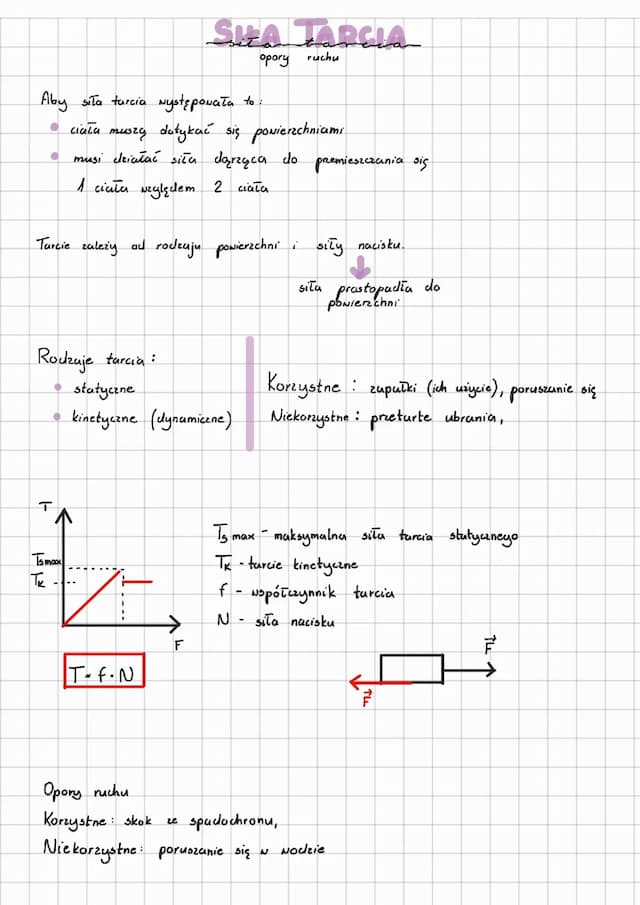 SIŁA TARCIA
siła tarcia
opory ruchu
Aby siła tarcia występowała to:
• ciała muszą dotykać się powierzchniami
• musi działać siła dążąca do przemieszczania się
1 ciała względem 2 ciała
Tarcie zależy od rodzaju powierzchni i siły nacisku.
siła prostopadła do
powierzchni
Rodzaje tarcia:
• statyczne
• kinetyczne (dynamiczne)
Korzystne: zapałki (ich użycie), poruszanie się
Niekorzystne: przetarte ubrania,
T
Ts max
TK
F
T = f · N
Ts max - maksymalna siła tarcia statycznego
TK - tarcie kinetyczne
f - współczynnik tarcia
N - siła nacisku
F
F
Opory ruchu
Korzystne: skok ze spadochronu,
Niekorzystne: poruszanie się w wodzie